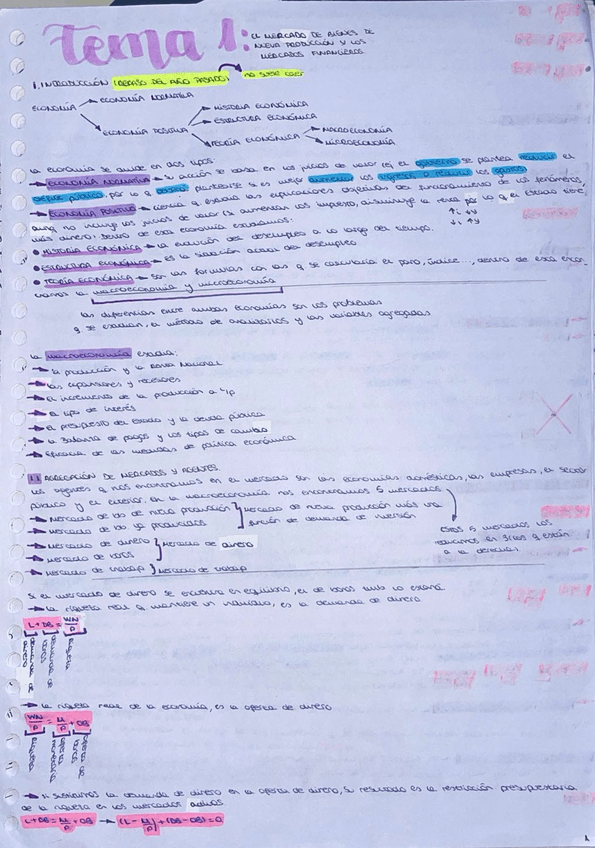 Tema 1: EL MERCADO DE BIENES DE
NUEVA PRODUCCIÓN Y LOS
MERCADOS FINANCIEROS
1. INTRODUCCIÓN (REPASO DEL AÑO PASADO) no suele caer
ECONOMÍA → ECONOMÍA NORMATIVA
→ HISTORIA ECONÓMICA
→ ESTRUCTURA ECONÓMICA
ECONOMÍA POSITIVA → TEORÍA ECONÓMICA → MACROECONOMÍA
→ MICROECONOMÍA
La economía se divide en dos tipos
→ ECONOMÍA NORMATIVA → su acción se basa en los juicios de valor (ej el gobierno se plantea reducir el
déficit público, por lo q deberá plantearse si es mejor aumentar los ingresos o reducir los gastos)
→ ECONOMÍA POSITIVA → ciencia q estudia las explicaciones objetivas del funcionamiento de los fenómenos,
aunq no incluye los juicios de valor (si aumentan los impuesto, disminuye la renta por lo q el estado tiene
más dinero). Dentro de esta economía estudiamos:
↑i ↓y
↓i ↑y
• HISTORIA ECONÓMICA → la evolución del desempleo a lo largo del tiempo.
• ESTRUCTURA ECONÓMICA → es la situación actual del desempleo
• TEORÍA ECONÓMICA → son las fórmulas con las q se calcularía el paro, índice..., dentro de esta encon
tramos la macroeconomía y microeconomía
las diferencias entre ambas economías son los problemas
q se estudian, el método de analizarlos y las variables agregadas
La macroeconomía estudia:
→ la producción y la Renta Nacional
→ las expansiones y recesiones
→ el incremento de la producción a l/p
→ el tipo de interés
→ el presupuesto del estado y la deuda pública
→ la Balanza de pagos y los tipos de cambio
→ eficacia de las medidas de política económica
1.1 AGREGACIÓN DE MERCADOS Y AGENTES
Los agentes q nos encontramos en el mercado son las economías domésticas, las empresas, el sector
público y el exterior. En la macroeconomía nos encontramos 5 mercados
→ mercado de bs de nueva producción } mercado de nueva producción más una
→ mercado de bs ya producidos función de demanda de inversión
→ mercado de dinero } mercado de dinero
→ mercado de bonos
→ mercado de trabajo } mercado de trabajo
estos 5 mercados los
reducimos en 3 (los q están
a la derecha)
Si el mercado de dinero se encuentra en equilibrio, el de bonos tmb lo estará
→ la riqueza real q mantiene un individuo, es la demanda de dinero
L + DB = WN/P
demanda de dinero
demanda de bonos
riqueza
→ la riqueza real de la economía, es la oferta de dinero
WN/P = M/P + OB
riqueza
oferta monetaria
oferta de bonos
→ si sustituimos la demanda de dinero en la oferta de dinero, su resultado es la restricción presupuestaria
de la riqueza en los mercados activos.
L + DB = M/P + OB → (L - M/P) + (DB - OB) = 0
1